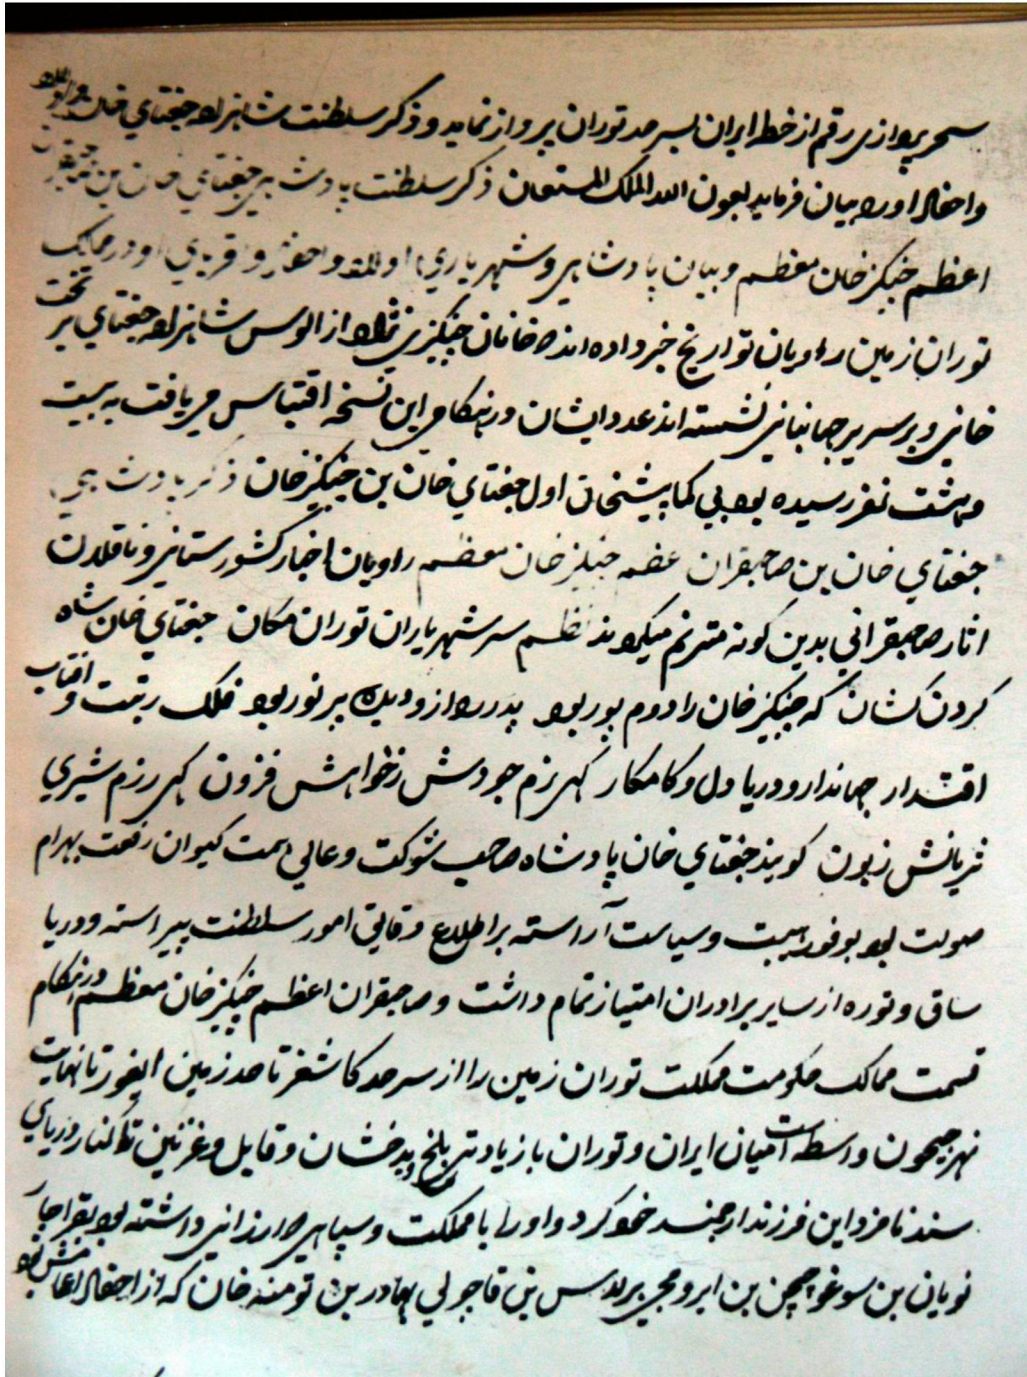 سحر پردازی رقم از خطه ایران بسرحد توران پرواز نماید و ذکر سلطنت شاهزاده جغتاي خان و اولاد
و احفاد او را بیان فرماید بعون الله الملک المستعان ذکر سلطنت پادشاهي جغتاي خان بن
اعظم جنکز خان معظم و بیان پادشاهي و شهریاري اولاد و احفاد و اقرباي او در ممالک
توران زمین راویان تواریخ خبر داده اند که خانان جنکیزي نژاد از الوس شاهزاده جغتاي بر تخت
خاني و بر سریر جهانباني نشسته اند عدد ایشان در هنکامي این نسخه اقتباس مي یافت به بیست
و هشت نفر رسیده بود بي کما پیشخان اول جغتاي خان بن جنکیز خان ذکر پادشاهي
جغتاي خان بن صاحبقران جنکیز خان معظم راویان اخبار کشورستاني و ناقلان
اثار صاحبقراني بدین کونه مترنم میکردند نظم سر شهریاران توران مکان جغتاي خان شاه
کردن کشان که جنکیز خان را دوم پور بود پدر را ازو دیده پر نور بود فلک رتبت و افتاب
اقتدار جهاندار و دریا دل و کامکار کهي بزم جودش ز خواهش فزون کهي رزم شیري
ژیانش زبون کویند جغتاي خان پادشاه صاحب شوکت و عالي همت کیوان رفعت بهرام
صولت بود بوفور هیبت و سیاست آراسته بر اطلاع دقایق امور سلطنت پیراسته و در یا
ساق و توره از سایر برادران امتیاز تمام داشت و صاحبقران اعظم جنکیز خان معظم در هنکام
قسمت ممالک حکومت مملکت توران زمین را از سرحد کاشغر تا حد زمین ایغور تا نهایت
نهر جیحون واسطه است میان ایران و توران با زیادتي بلخ و بدخشان و قابل و غزنین تا کنار دریاي
سند نامزد این فرزند ارجمند خود کرد و او را با مملکت و سپاهي ارزاني داشته بود بقراجار
نویان بن سوغوچیچن بن ایرومجي برلاس بن قاجولي بهادر بن تومنه خان که از احفاد